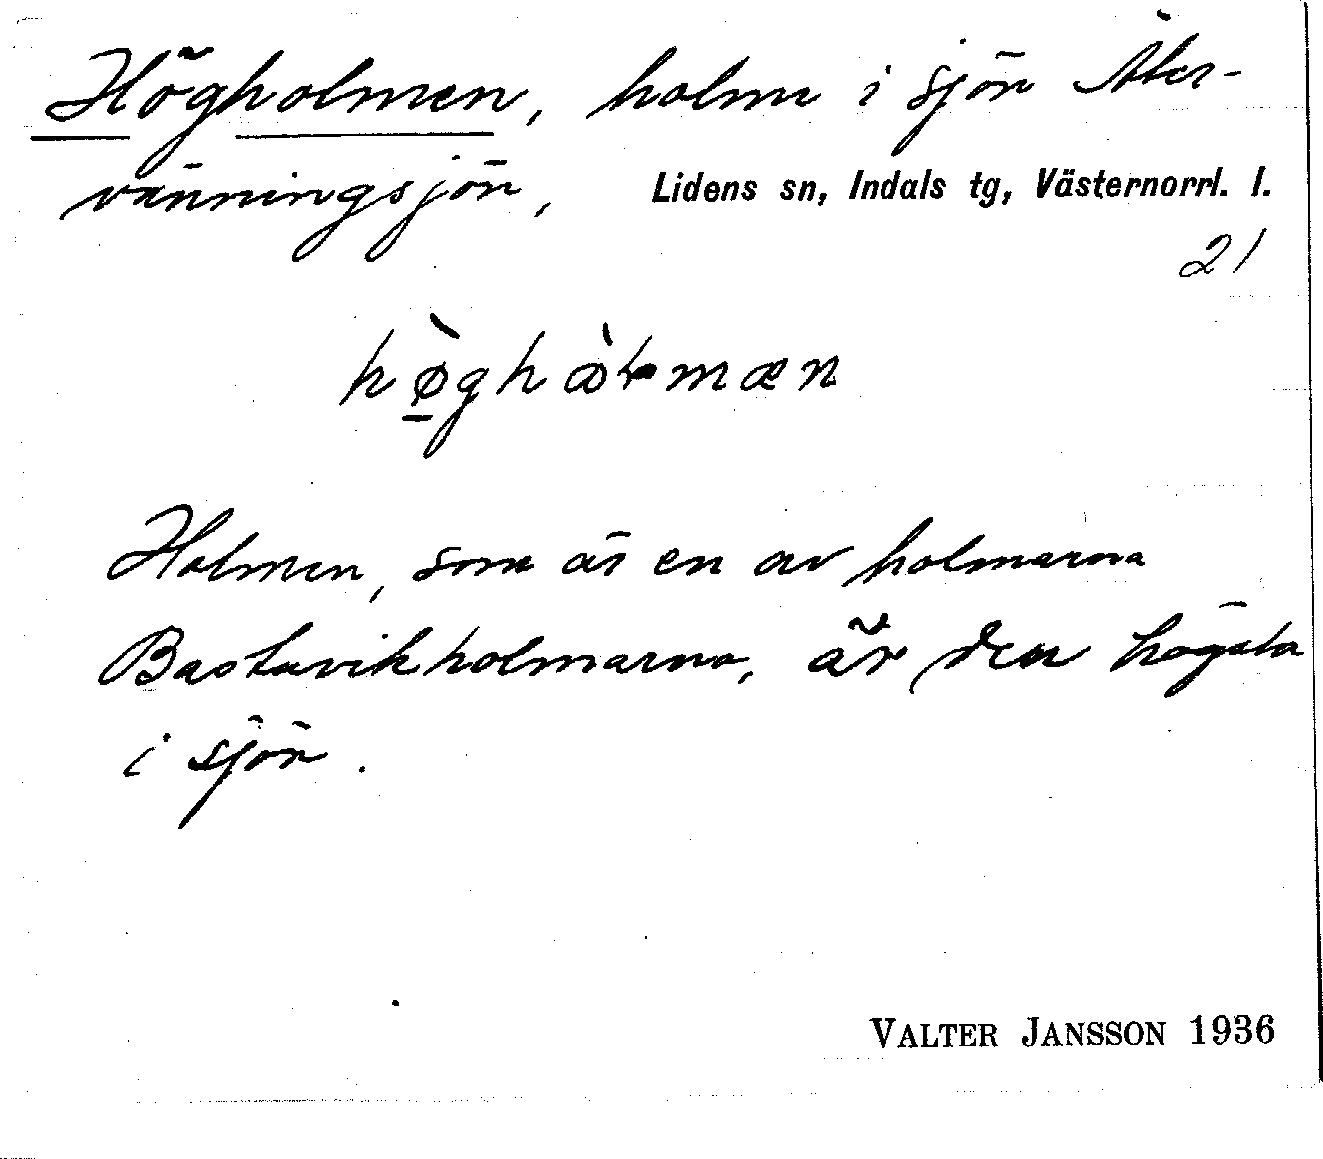 Högholmen, holme i sjön Åter-
vänningsjön, Lidens sn, Indals tg, Västernorrl. l.
21
hø̀ghòɫmæn
Holmen, som är en av holmarna
Bastuvikholmarna, är den högsta
i sjön.
VALTER JANSSON 1936